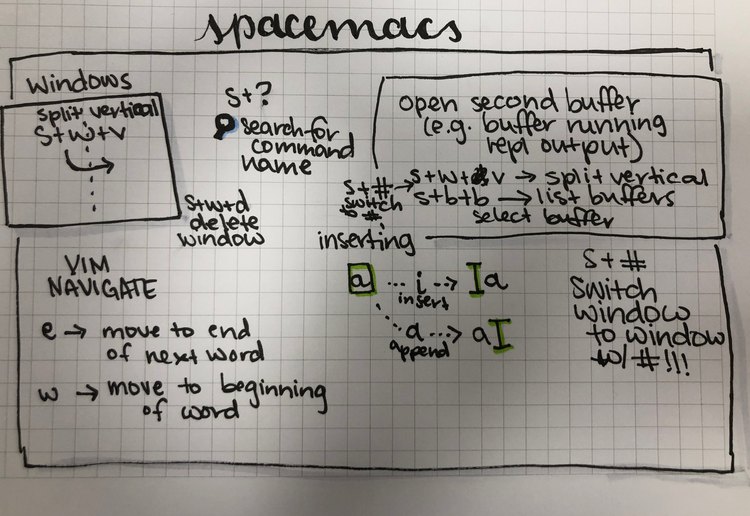 spacemacs
windows
split vertical
s+w+v
s+?
search for
command
name
s+w+d
delete
window
open second buffer
(e.g. buffer running
repl output)
s+w+v → split vertical
s+b+b → list buffers
select buffer
s+#
switch
to #
inserting
a ... i ...> I a
insert
a ...> a I
append
VIM
NAVIGATE
e → move to end
of next word
w → move to beginning
of word
s+#
switch
window
to window
w/ #!!!